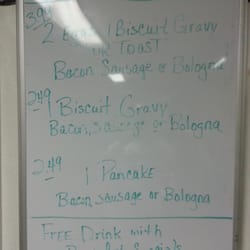 3.99
2 Eggs 1 Biscuit Gravy
or Toast
Bacon Sausage or Bologna
2.49
1 Biscuit Gravy
Bacon, Sausage or Bologna
2.49
1 Pancake
Bacon Sausage or Bologna
Free Drink with
Breakfast Specials